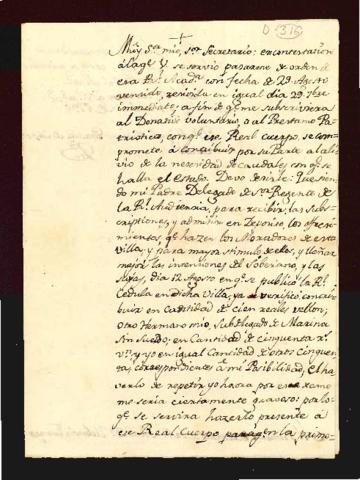 D-316
+
Muy Sr. mio, Sor. Secretario: en contestacion
á la qe V se sirvio pasarme de orden de
esa Rl. Acada. con fecha de 29 Agosto
venido, en igual dia 29
immediato, a fin de qe me subscriviera
al Donativo voluntario, o al Prestamo Pa-
triotico, con qe ese Real cuerpo se com-
promete á concibuir por su Parte al ali-
vio de la necesidad de caudales con qe se
halla el Estado. Devo decirle: Que sien-
do mi Padre Delegado de Sr. Regente de
la Rl. Audiencia, para recibir las Subs-
cripciones, y admitir en Deposito los ofreci-
mientos, qe hazen los Moradores de esta
Villa, y para mayor stimulo de ellos, y llenar
mejor las intenciones del Soberano, y las
suyas, dia 12 Agosto en qe se publicó la Rl.
Cedula en Dicha Villa, ya verificó
buir en Cantidad de cien reales vellon;
otro Hermano mio, Subdelegado de Marina
sin Sueldo, en Cantidad de cinquenta rs.
vn; y yo en igual Cantidad de otros cinquen-
ta, correspondientes á mi Posibilidad, el ha-
verlo de repetir yo hahora por
me seria ciertamente gravoso; por lo
qe se servira hazerlo presente á
ese Real Cuerpo en la prime-